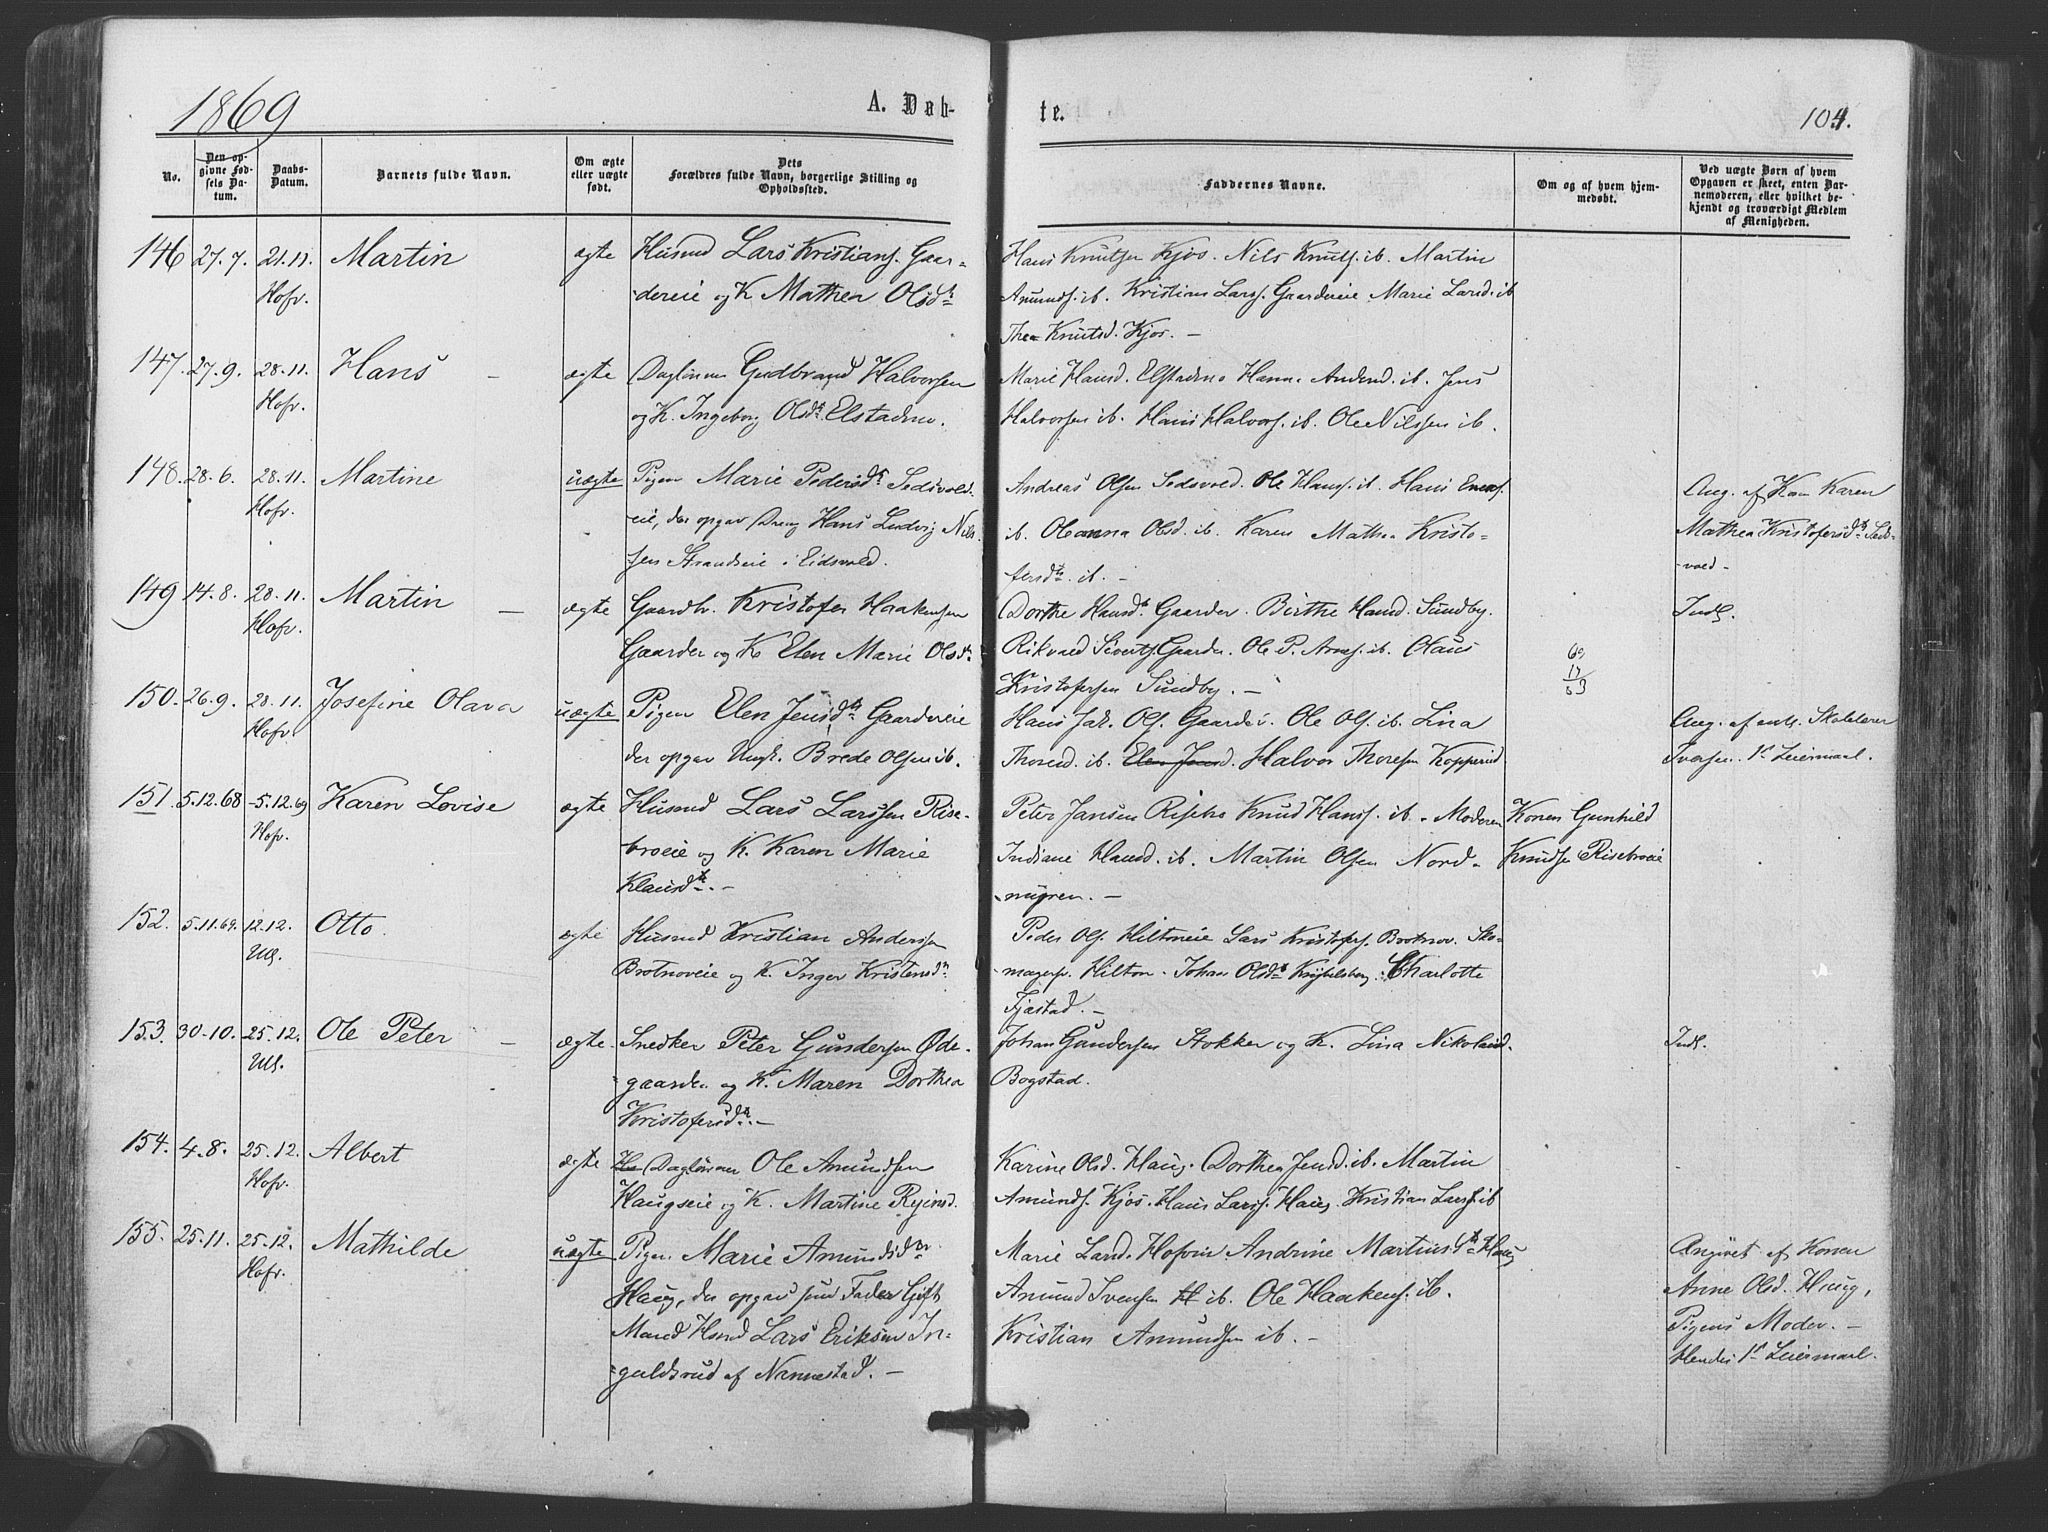 1869
A. Døb-
te.
104.
No.
Den op-
givne Fød-
sels Da-
tum.
Daabs-
Datum.
Barnets fulde Navn.
Om ægte
eller uægte
født.
Dets
Forældres fulde Navn, borgerlige Stilling og
Opholdssted.
Faddernes Navne.
Om og af hvem hjem-
medøbt.
Ved uægte Børn af hvem
Opgaven er skeet, enten Bar-
nemoderen, eller hvilket be-
kjendt og troværdigt Medlem
af Menigheden.
146 27.7. 21.11. Martin ægte Husmd Lars Kristians. Gaar-
Hofv. dereie og K. Mathea Olsdtr
Hans Knutsen Kjos. Nils Knuts. ib. Martin
Amunds. ib. Kristian Larss. Gaardereie Marie Larsd. ib
Thea Knutsd. Kjos. —
147. 27.9. 28.11. Hans — ægte Daglønner Gudbrand Halvorsen
Hofv. og K. Ingeborg Olsdtr Elstadmo.
Marie Hansd. Elstadmo Hanna Andersd. ib. Jens
Halvorsen ib. Hans Halvors. ib. Ole Nilssen ib.
148. 28.6. 28.11. Martine uægte Pigen Marie Pedersdtr Sedsvold-
Hofv. eie, der opgav Dreng Hans Ludvig Nils-
sen Strandseie i Eidsvold.
Andreas Olsen Sedsvold. Ole Hans. ib. Hans
ib. Oleanna Olsd. ib. Karen Mathea Kristo-
fersdtr ib. —
Ang. af Kone Karen
Mathea Kristofersdtr Seds-
vold —
149 14.8. 28.11. Martin — ægte Gaardbr. Kristofer Haakensen
Hofv. Gaarder og K Elen Marie Olsdtr
Dorthe Hansdtr Gaarder. Birthe Hansd. Sundby.
Rikvald Siverts. Gaarder. Ole P. Arnes. ib. Olaus
Kristofersen Sundby. —
Indf.
69
17
53
150. 26.9. 28.11. Josefine Olava uægte Pigen Elen Jensdtr Gaardereie
Hofv. der opgav Ungk. Brede Olsen ib.
Hans Jak. Ols. Gaarder. Ole Ols. ib. Lina
Thoresd. ib. Elen Jensd. Halvor Thoresen Kopperud
Ang. af enh. Skolelærer
Iversen. 1st Leiermaal.
151. 5.12.68 5.12.69 Karen Lovise ægte Husmd Lars Larssen Rise-
Hofv. broeie og K. Karen Marie
Klausdtr. —
Peter Jansen Knud Hanss. ib. Moderen
Indiane Hansd. ib. Martin Olsen Nord-
myren. —
Konen Gunhild
Knudsen Risebroeie
152. 5.11.69. 12.12. Otto. ægte Husmd Kristian Anderssen
Ull. Brotnoveie og K. Inger Kristensdtr
Peder Ols. Hiltneie Lars Kristofers. Brotnov. Sko-
magers. Hilton. Johan Olsdtr Charlotte
Fjæstad. —
153. 30.10. 25.12. Ole Peter — ægte Snedker Peter Gundersen Øde-
Ull. gaarden og K. Maren Dorthea
Kristofersdtr. —
Johan Gundersen Stokker og K. Lina Nikolaisd.
Bogstad.
Indf.
154. 4.8. 25.12. Albert ægte Daglønner Ole Amundsen
Hofv. Haugseie og K. Martine Reiersd.
Karine Olsd. Haug. Dorthea Jensd. ib. Martin
Amunds. Kjos. Hans Larss. Haug. Kristian Larss. ib
155. 25.11. 25.12. Mathilde uægte Pigen Marie Amundsdtr
Hofv. Haug, der opgav som Fader Gift
Mand Hmd Lars Eriksen In-
galdsrud af Nannestad. —
Marie Larsd. Hofvin Andrine Martinsdtr Haug
Amund Ivensen H ib. Ole Haakens. ib.
Kristian Amundsen ib. —
Angivet af Konen
Anne Olsd. Haug,
Pigens Moder. —
Hendes 1st Leiermaal.